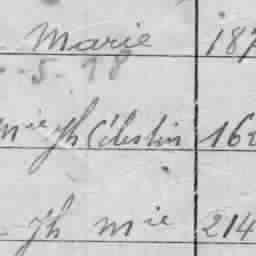 Marie 187
5. 18
Mie Jh Célestin 162
Jh Mie 214